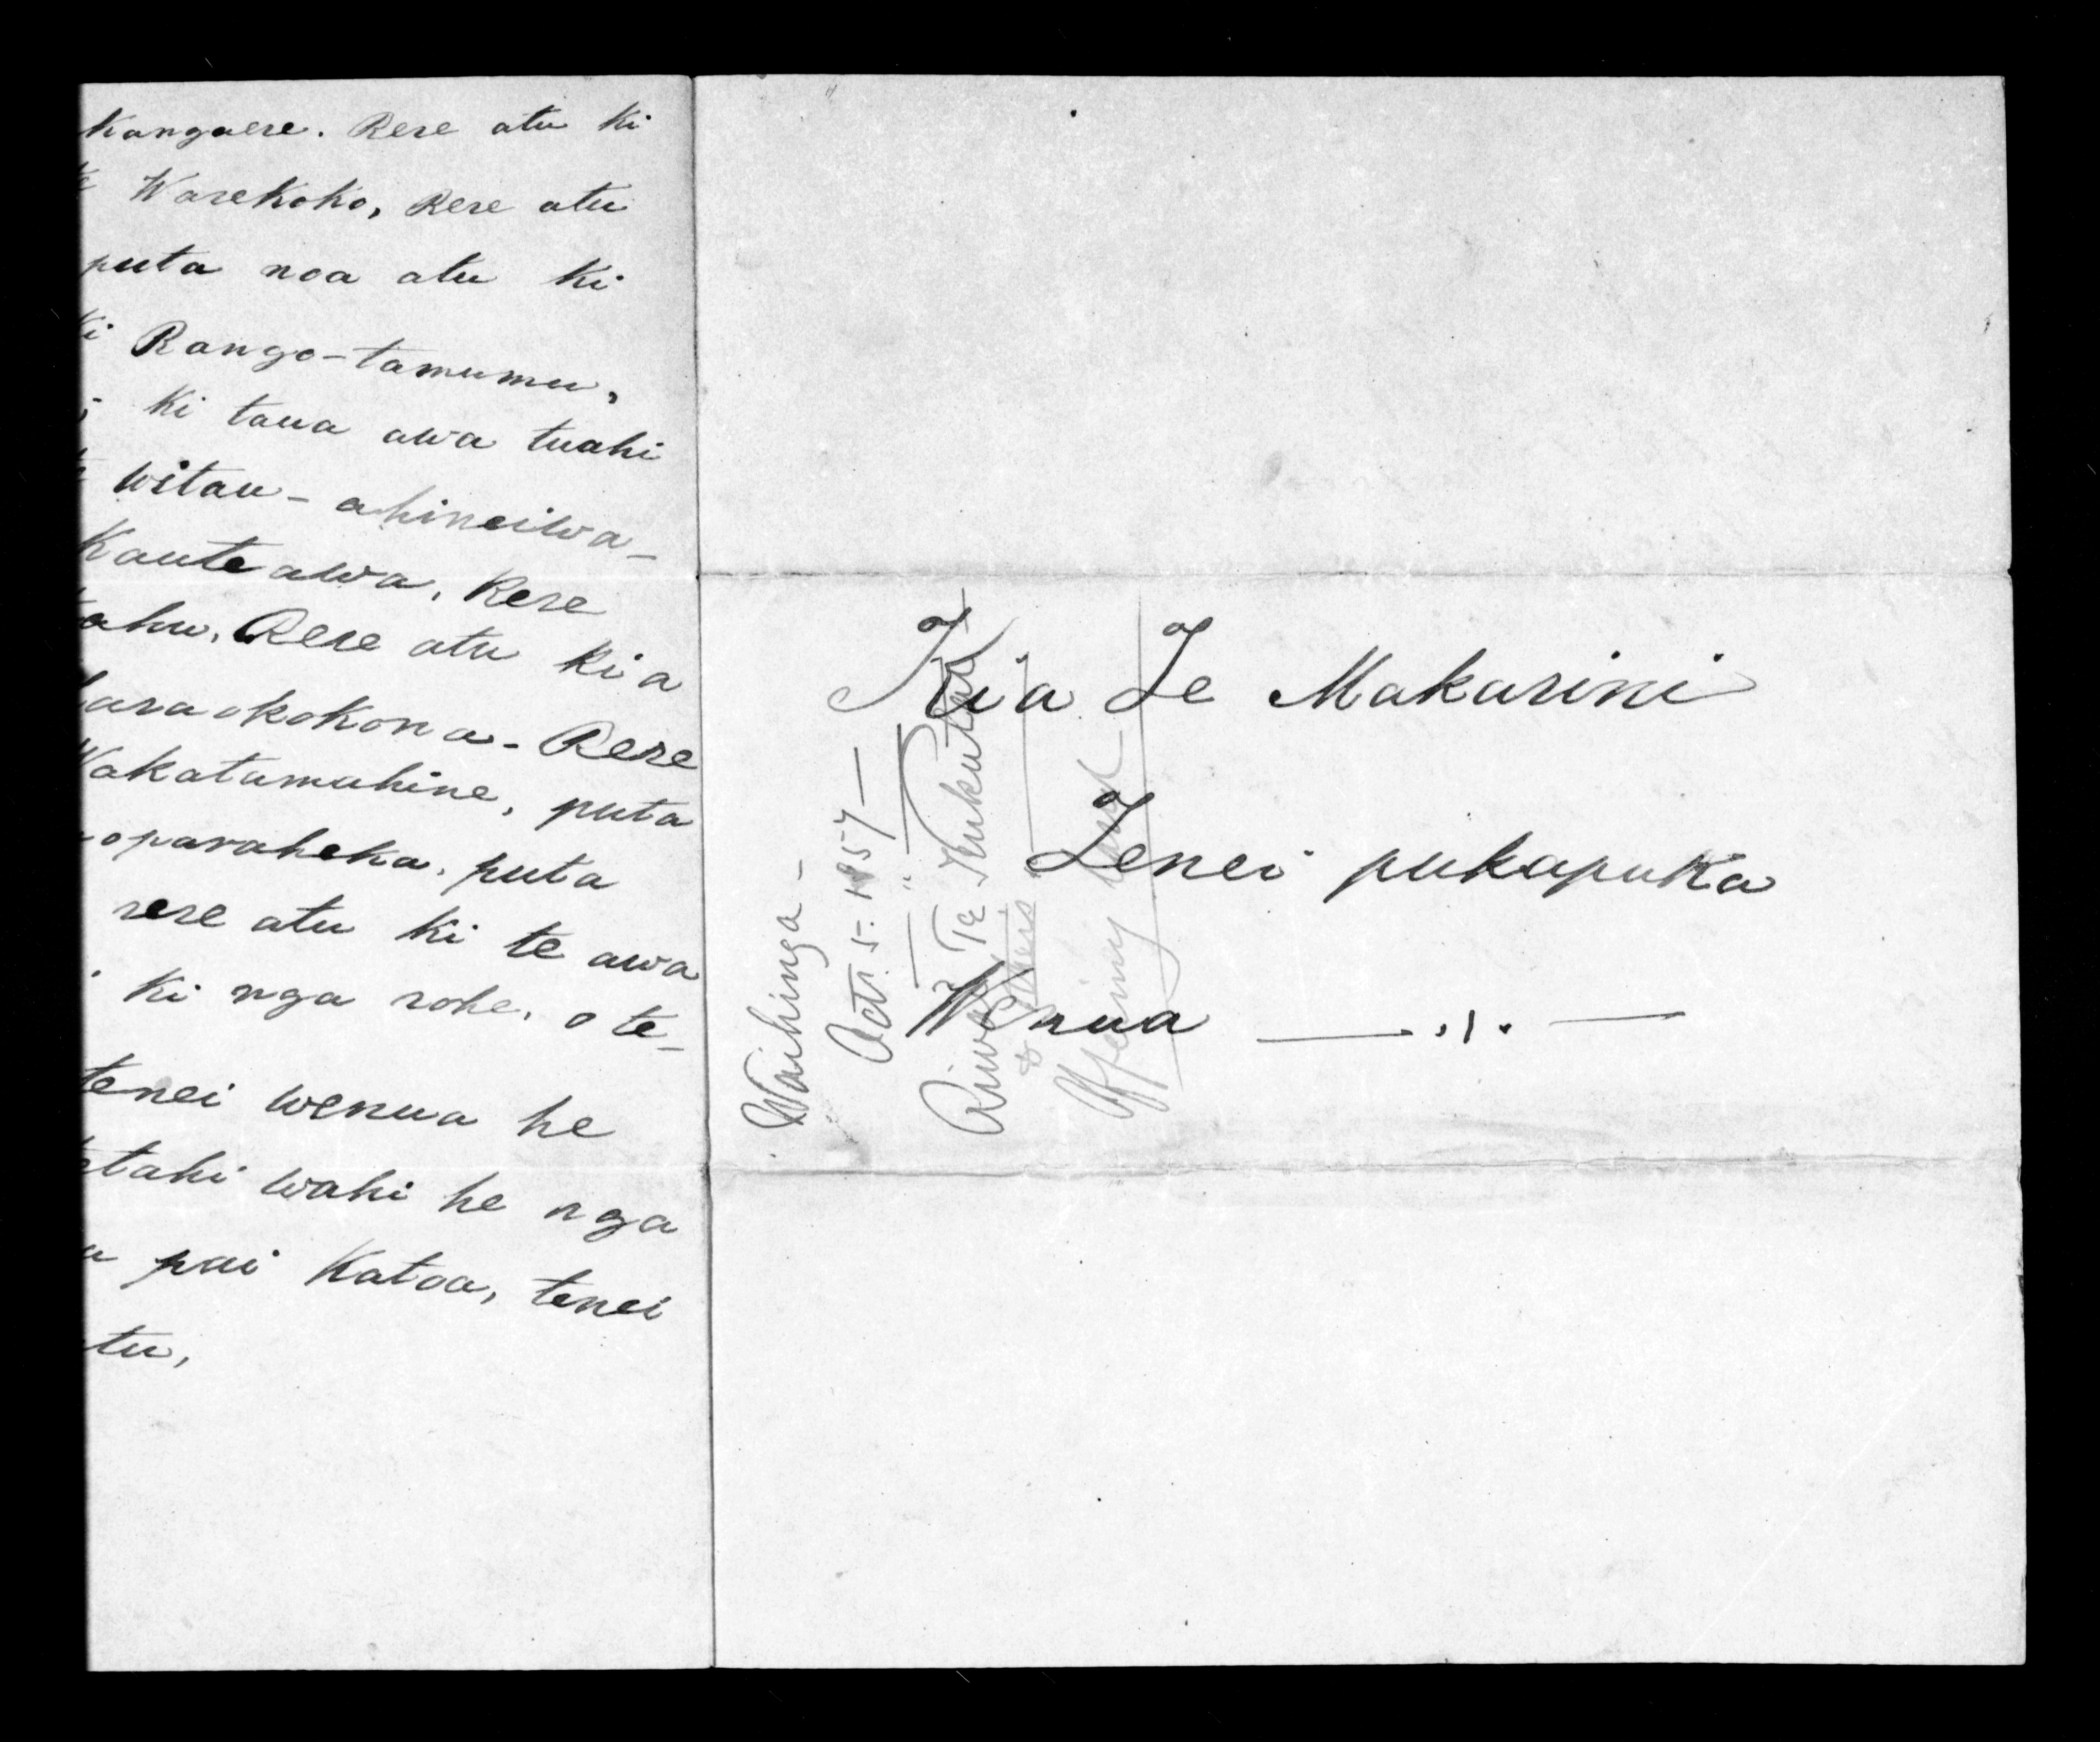 Kangaere. Rere atu ki
Warekoko, Rere atu
puta noa atu ki
ki Rango-tamumu,
ki taua awa tuahi
witau-ahineiwa-
Kauteawa, Rere
ahu. Rere atu kia
araokokona - Rere
Wakatamuhine, puta
oparaheka, puta
rere atu ki te awa
ki nga rohe, o te-
tenei wenua he
etahi wahi he nga
pai Katoa, tenei
tu,
Kia Te Makarini
Tenei pukapuka
Wenua
Waihinga -
Octr. 5. 1857 -
Te
& others
Offering land